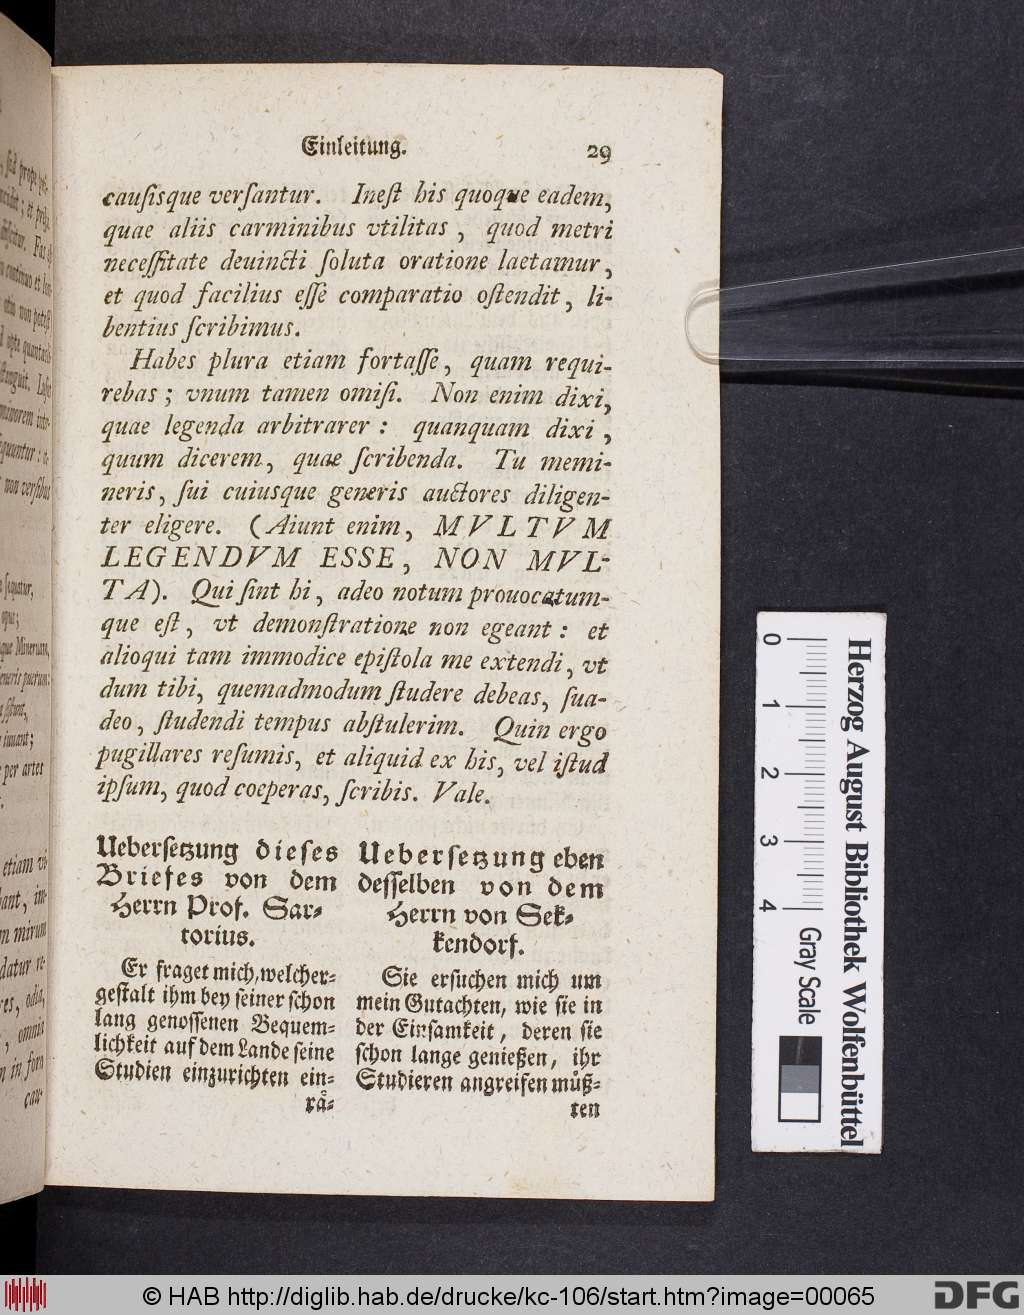 Einleitung. 29
cauſisque verſantur. Ineſt his quoque eadem,
quae aliis carminibus vtilitas, quod metri
neceſſitate deuincti ſoluta oratione laetamur,
et quod facilius eſſe comparatio oſtendit, li-
bentius ſcribimus.
Habes plura etiam fortaſſe, quam requi-
rebas; vnum tamen omiſi. Non enim dixi,
quae legenda arbitrarer: quanquam dixi,
quum dicerem, quae ſcribenda. Tu memi-
neris, ſui cuiusque generis auctores diligen-
ter eligere. (Aiunt enim, MVLTVM
LEGENDVM ESSE, NON MVL-
TA). Qui ſint hi, adeo notum prouocatum-
que eſt, vt demonſtratione non egeant: et
alioqui tam immodice epiſtola me extendi, vt
dum tibi, quemadmodum ſtudere debeas, ſua-
deo, ſtudendi tempus abſtulerim. Quin ergo
pugillares reſumis, et aliquid ex his, vel iſtud
ipſum, quod coeperas, ſcribis. Vale.
Ueberſetzung dieſes
Briefes von dem
Herrn Prof. Sar-
torius.
Er fraget mich, welcher-
geſtalt ihm bey ſeiner ſchon
lang genoſſenen Bequem-
lichkeit auf dem Lande ſeine
Studien einzurichten ein-
rå-
Ueberſetzung eben
deſſelben von dem
Herrn von Sek-
kendorf.
Sie erſuchen mich um
mein Gutachten, wie ſie in
der Einſamkeit, deren ſie
ſchon lange genießen, ihr
Studieren angreifen můß-
ten
0 1 2 3 4
Gray Scale
Herzog August Bibliothek Wolfenbüttel
etiam vi-
n mirum
datur re-
omnia
n in foro
cau-
© HAB http://diglib.hab.de/drucke/kc-106/start.htm?image=00065
DFG